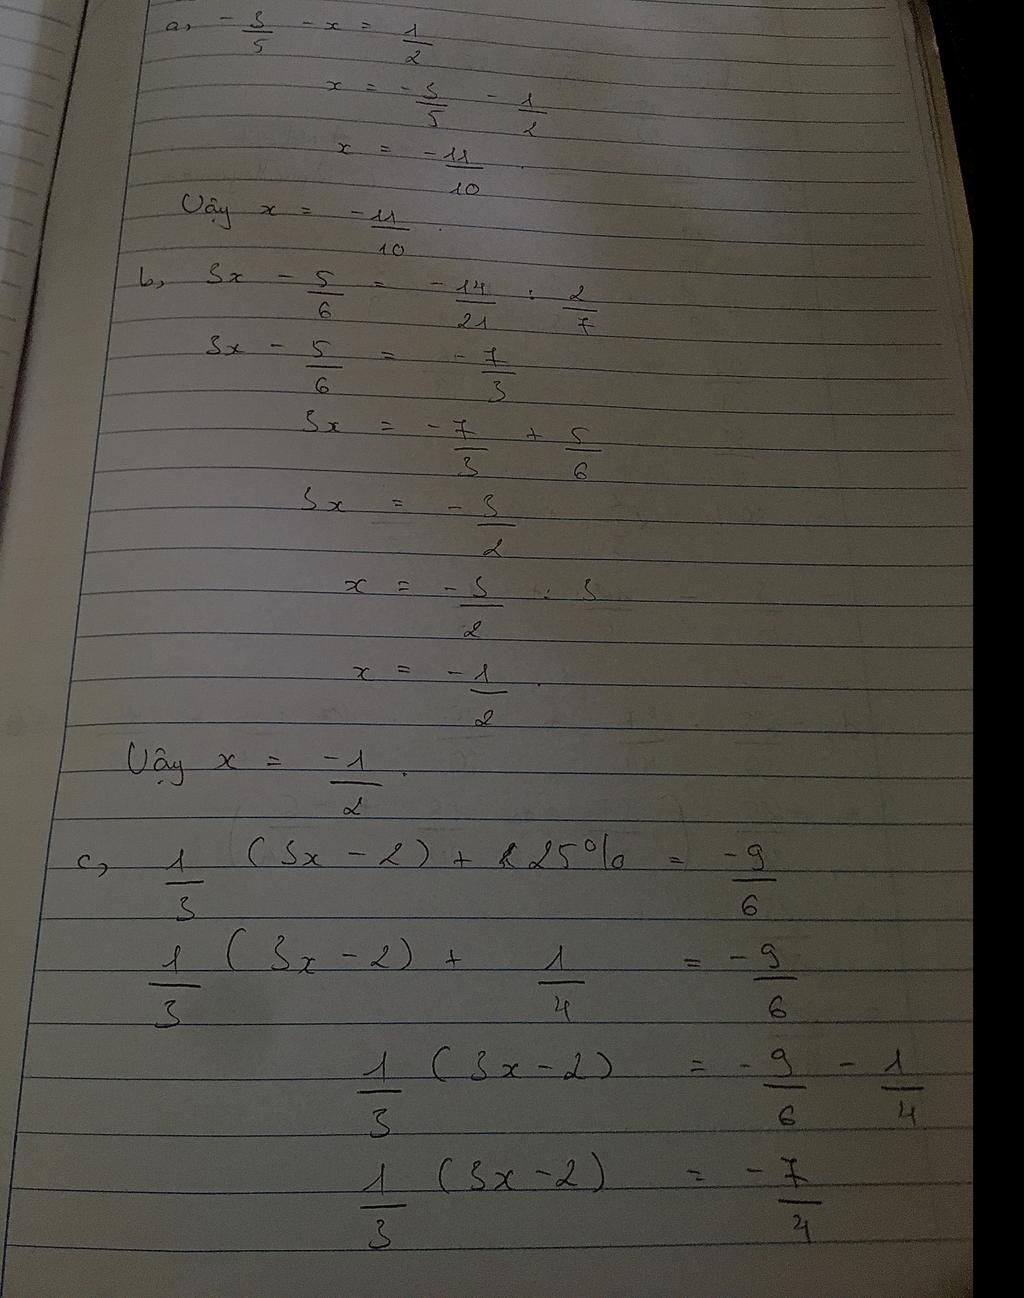 a, -3/5 - x = 1/2
x = -3/5 - 1/2
x = -11/10
Vậy x = -11/10.
b, 3x - 5/6 = -14/21 : 2/7
3x - 5/6 = -7/3
3x = -7/3 + 5/6
3x = -3/2
x = -3/2 : 3
x = -1/2.
Vậy x = -1/2.
c, 1/3 (3x - 2) + 25% = -9/6
1/3 (3x - 2) + 1/4 = -9/6
1/3 (3x - 2) = -9/6 - 1/4
1/3 (3x - 2) = -7/4